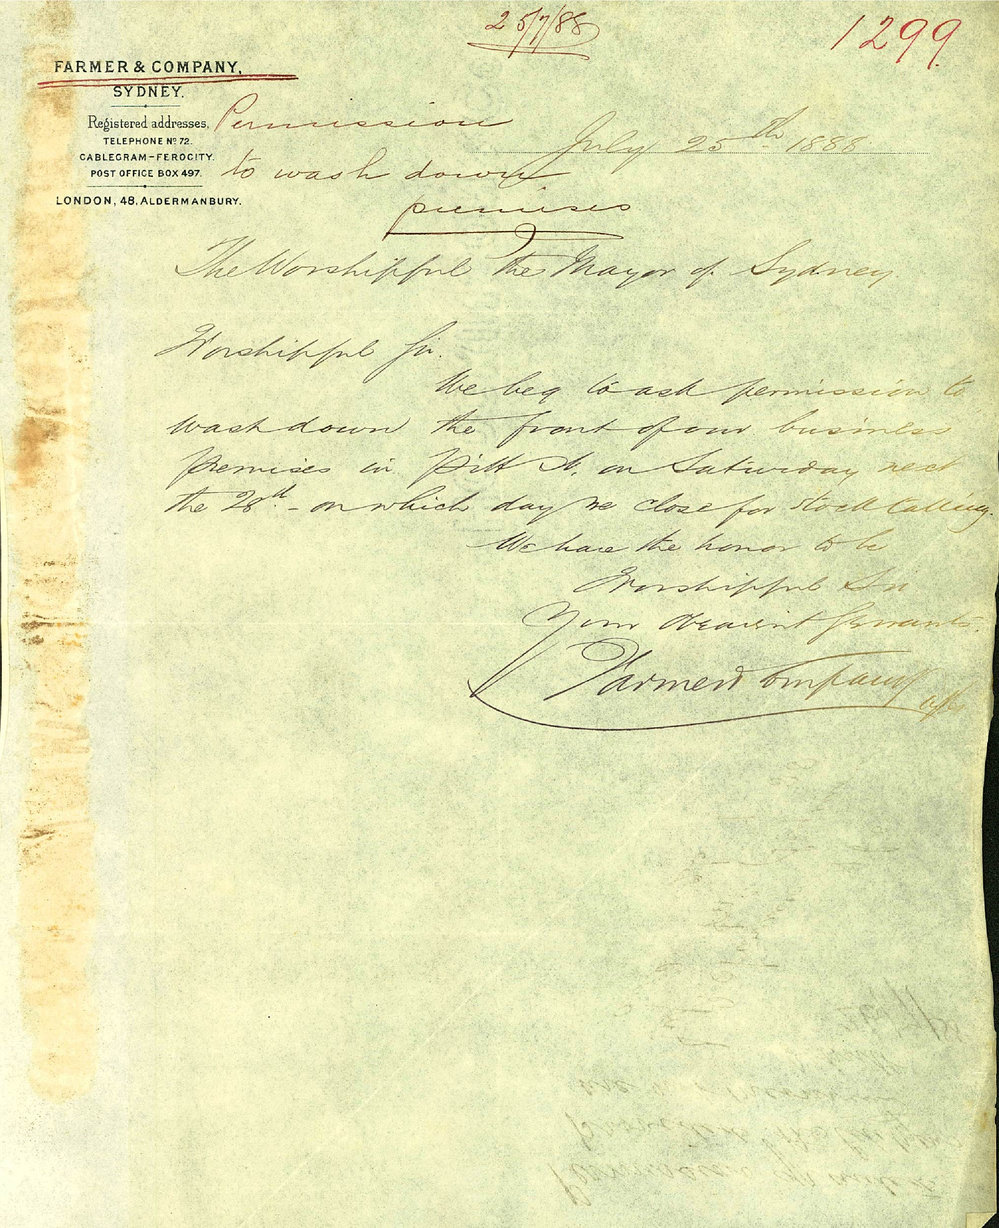 25/7/88
1299.
FARMER & COMPANY,
SYDNEY.
Registered addresses,
TELEPHONE Nº 72.
CABLEGRAM-FEROCITY.
POST OFFICE BOX 497.
LONDON, 48, ALDERMANBURY.
Permission
to wash down
premises
July 25th 1888
The Worshipful the Mayor of Sydney
Worshipful Sir.
We beg to ask permission to
wash down the front of our business
premises in Pitt St. on Saturday next
the 28th - on which day we close for Stock taking.
We have the honor to be
Worshipful Sir
Your Obedient Servants.
Farmer & Company